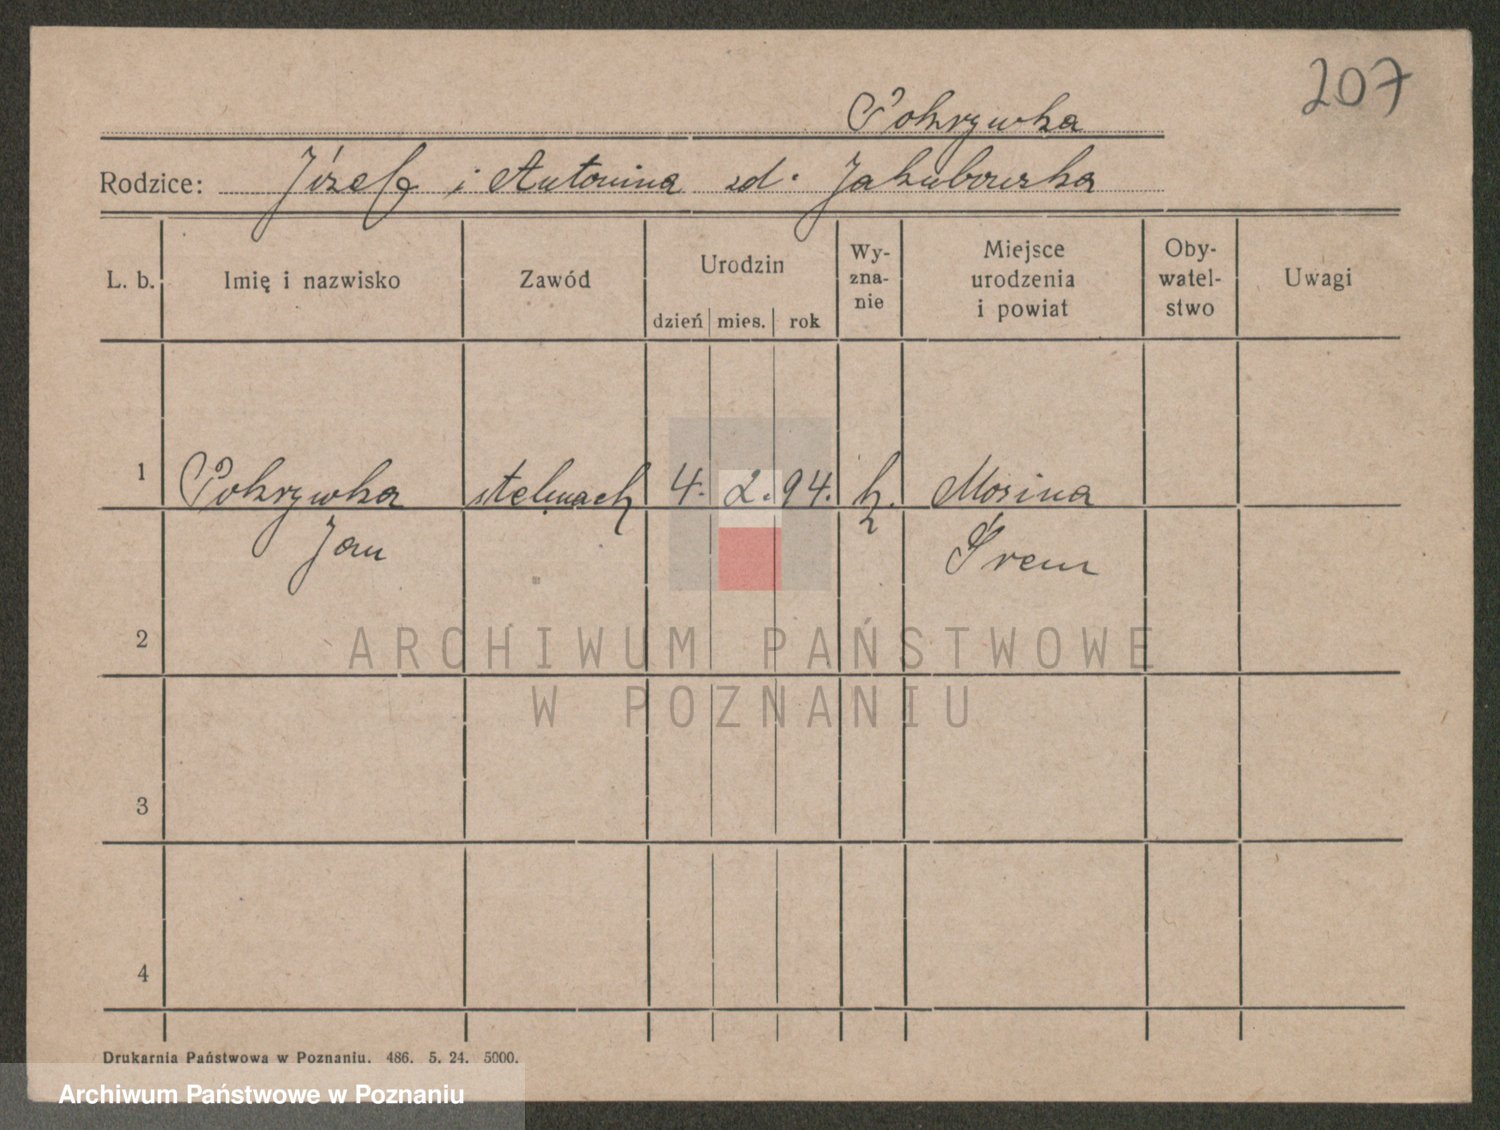 207
Pokrzywka
Rodzice: Józef i Antonina zd. Jakubowska
L. b. Imię i nazwisko Zawód Urodzin dzień mies. rok Wy-zna-nie Miejsce urodzenia i powiat Oby-watel-stwo Uwagi
1 Pokrzywka stelmach 4. 2. 94. k. Mosina
Jan Śrem
2
ARCHIWUM PAŃSTWOWE
W POZNANIU
3
4
Drukarnia Państwowa w Poznaniu. 486. 5. 24. 5000.
Archiwum Państwowe w Poznaniu